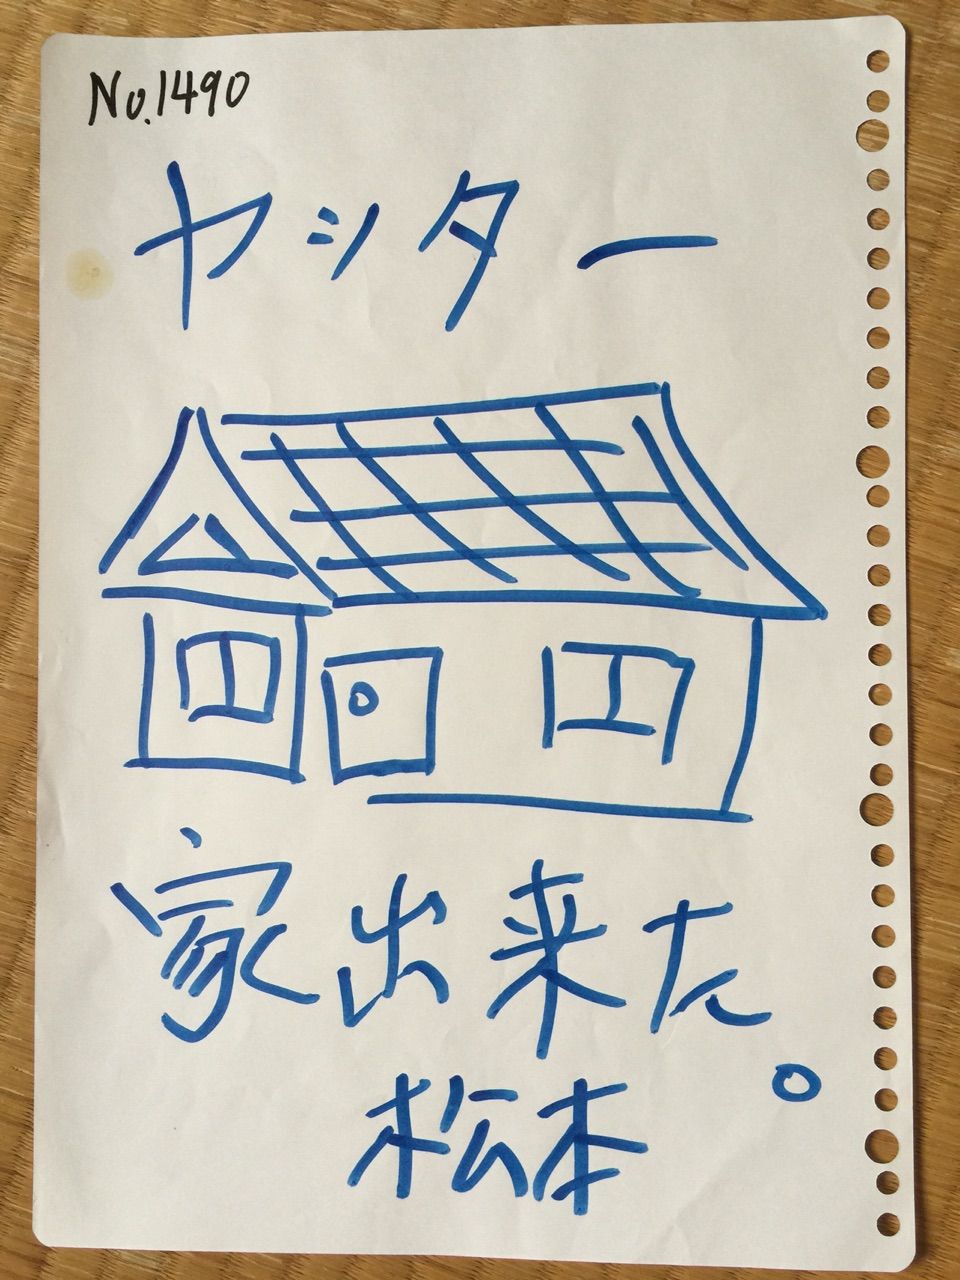 No.1490
ヤッター
家出来た。
松本